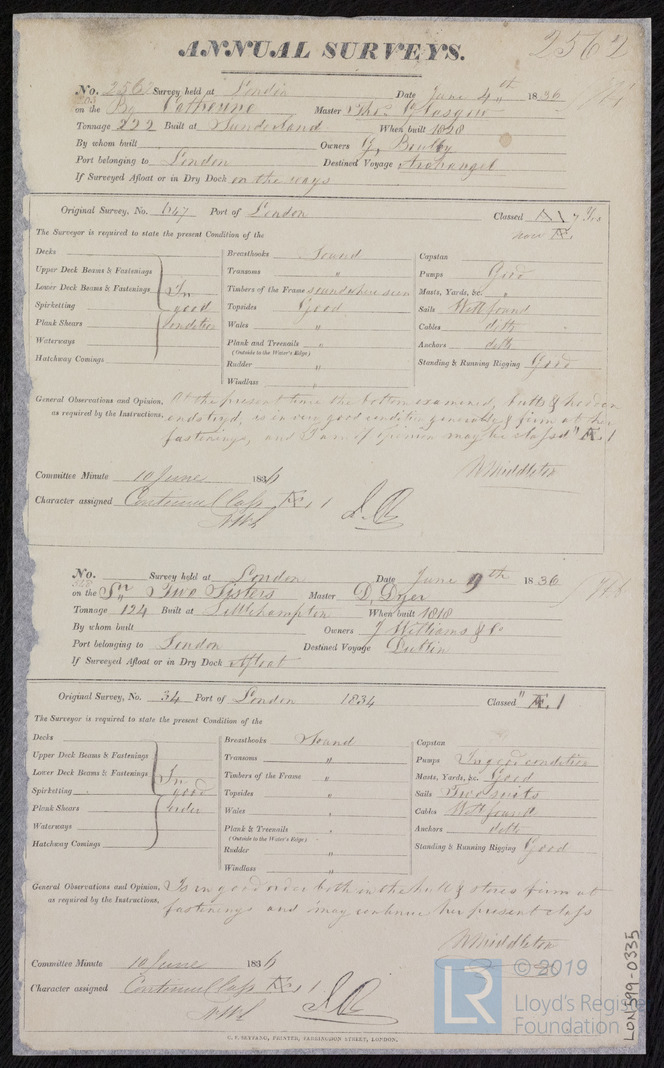 2562
ANNUAL SURVEYS.
No. 2562 Survey held at London Date June 4th 1836
on the Bg Catherine Master Thos. Glasgow
Tonnage 222 Built at Sunderland When built 1828
By whom built Owners G. Boulby
Port belonging to London Destined Voyage Archangel
If Surveyed Afloat or in Dry Dock on the ways
Original Survey, No. 647 Port of London Classed A1 7 Yrs
now Æ1
The Surveyor is required to state the present Condition of the
Decks
Upper Deck Beams & Fastenings
Lower Deck Beams & Fastenings In
Spirketting good
Plank Shears condition
Waterways
Hatchway Comings
Breasthooks Sound
Transoms "
Timbers of the Frame sound where seen
Topsides Good
Wales "
Plank and Treenails "
(Outside to the Water's Edge)
Rudder "
Windlass "
Capstan
Pumps Good
Masts, Yards, &c. "
Sails Well found
Cables ditto
Anchors ditto
Standing & Running Rigging Good
General Observations and Opinion, At the present time her bottom examined, butts & hooden
as required by the Instructions. ends tryd, is in very good condition generally & firm at her
fastenings, and I am of opinion may be classed "Æ.1
W Middleton
Committee Minute 10 June 1836
Character assigned Continued Class Æ 1
No. Survey held at London Date June 9th 1836
on the Sr Two Sisters Master D. Dyer
Tonnage 124 Built at Littlehampton When built 1818
By whom built Owners J Williams & Co
Port belonging to London Destined Voyage Dublin
If Surveyed Afloat or in Dry Dock Afloat
Original Survey, No. 34 Port of London 1834 Classed "Æ.1
The Surveyor is required to state the present Condition of the
Decks
Upper Deck Beams & Fastenings
Lower Deck Beams & Fastenings In
Spirketting good
Plank Shears order
Waterways
Hatchway Comings
Breasthooks Sound
Transoms "
Timbers of the Frame "
Topsides "
Wales "
Plank & Treenails "
(Outside to the Water's Edge)
Rudder "
Windlass "
Capstan
Pumps In good condition
Masts, Yards, &c. Good
Sails Two suits
Cables Well found
Anchors ditto
Standing & Running Rigging Good
General Observations and Opinion, Is in good order both in the hull & stores firm at
as required by the Instructions. fastenings and may continue her present class
W Middleton
Committee Minute 10 June 1836
Character assigned Continued Class Æ 1
LR © 2019
Lloyd's Register
Foundation
LON599-0335
C. F. SEYFANG, PRINTER, FARRINGDON STREET, LONDON.